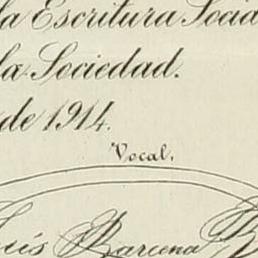 la Escritura Socia
la Sociedad.
de 1914.
Vocal.
Luis Barcena B